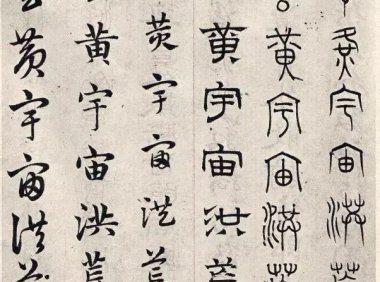 黃宇宙洪荒
黃宇宙洪荒
黃宇宙洪荒
黃宇宙洪荒
黃宇宙洪荒
黃宇宙洪荒